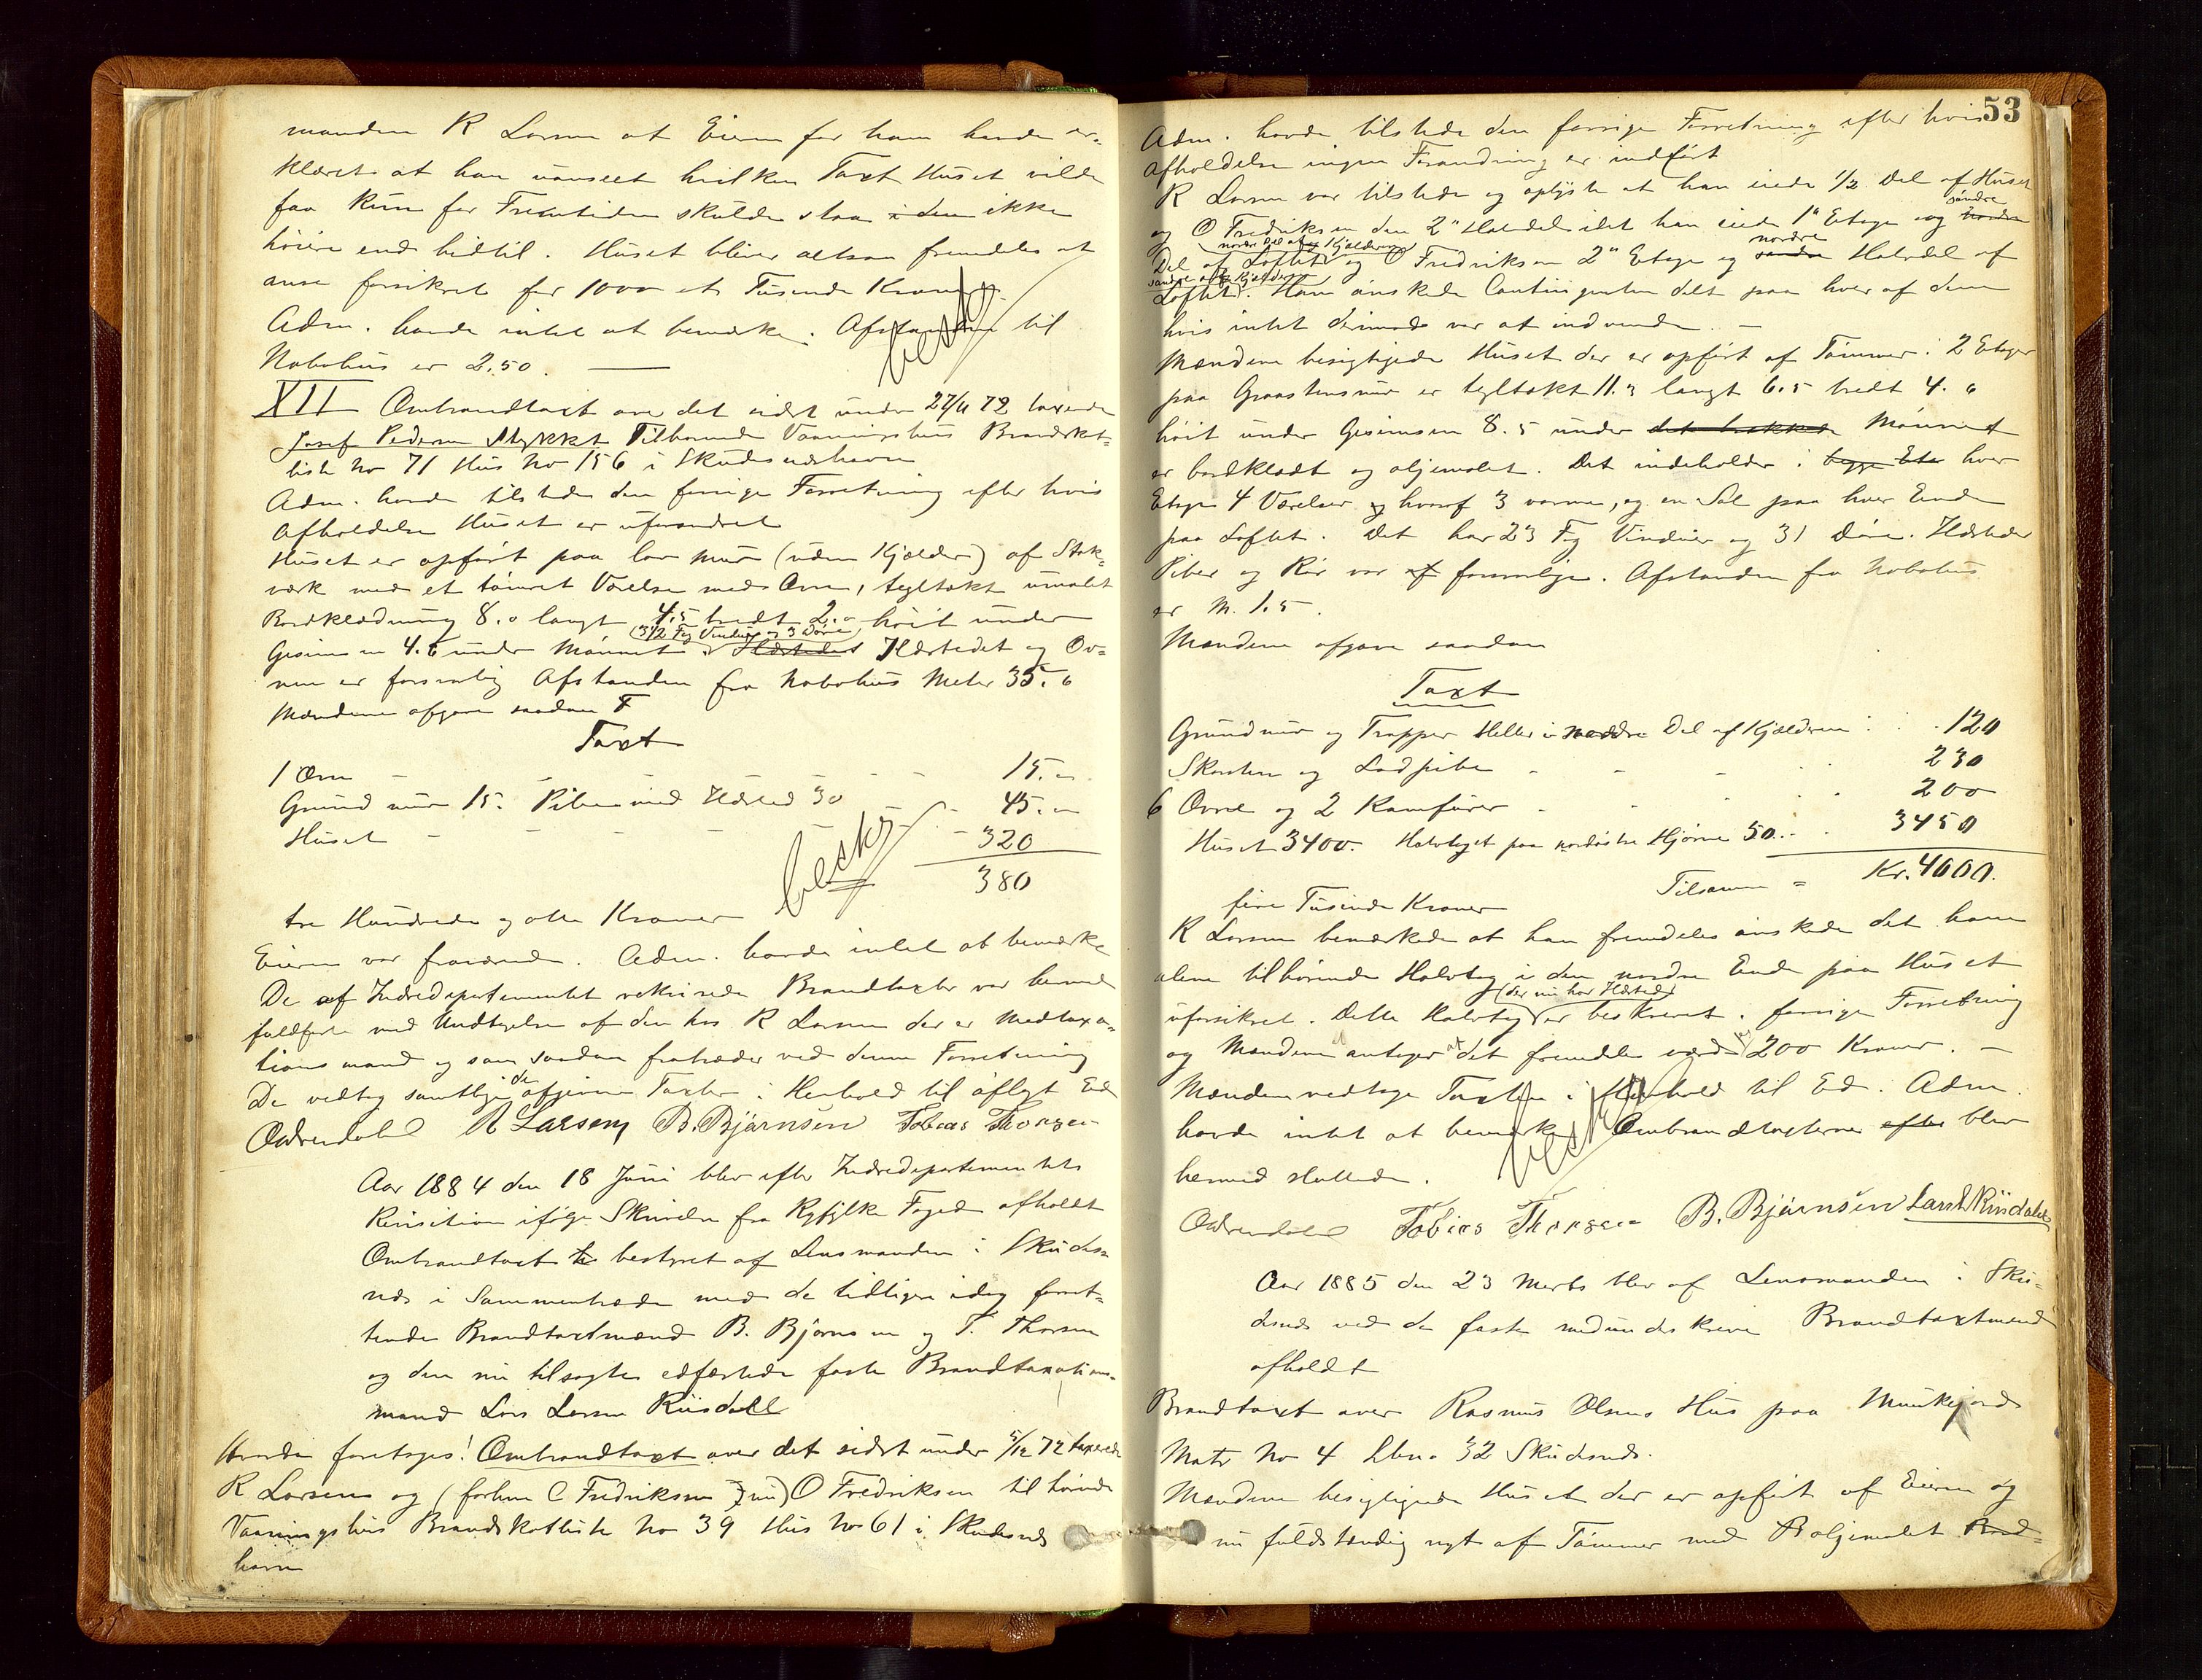 manden R Larsen at Eieren for ham havde er-
klæret at han uanseet hvilken Taxt Huset vilde
faa kun for Fremtiden skulde staa i den ikke
høiere end hidtil. Huset bliver altsaa fremdeles at
anse forsikret for 1000 et Tusinde Kroner.
Adm. havde intet at bemærke. Afstanden til
Nabohus er 2.50.
XII Ombrandtaxt over det sidst under 27/11 72 taxerede
Josef Pedersen Stykket Tilhørende Vaaningshus Brandskat-
liste No 71 Hus No 156 i Skudesneshavn
Adm. havde tilstede den forrige Forretning efter hvis
Afholdelse Huset er uforandret
Huset er opført paa lav mur (uden Kjælder) af Stok-
værk med et tømret Værelse med Ovn, tegltækt umalet
Bordklædning 8.0 langt 4.5 bredt 2.0 høit under
(3 1/2 Fg Vinduer og 3 Døre)
Gesimsen 4.6 under Mønnet. Ildstedet Ildstedet og Ov-
nen er forsvarlig Afstanden fra Nabohus Meter 35.0
Mændene afgave saadan
Taxt
1 Ovn 15.-
Grundmur 15. Piben med Ildsted 30 45.-
Huset 320
380
besk
tre Hundrede og otte Kroner
Eieren var fraværende. Adm. havde intet at bemærke
De af Indredepartementet rekvirerede Brandtaxter var hermed
fuldførte med Undtagelse af den hos R Larsen der er Medtaxa-
tionsmand og som saadan fratræder ved denne Forretning
De vedtog samtlige de afgivne Taxter i Henhold til aflagt Ed
Odrendahl R Larsen B. Bjørnsen Tobias Thorsen
Aar 1884 den 18 Juni blev efter Indredepartementets
Rekvisition ifølge Skrivelse fra Ryfylke Foged afholdt
Ombrandtaxt bestyret af Lensmanden i Skudes-
nes i Sammentræde med de tidligere idag forret-
tende Brandtaxtmænd B. Bjørnsen og T. Thorsen
og den nu tilsagte edfæstede faste Brandtaxations-
mand Lars Larsen Risdal
Hvorda foretages! Ombrandtaxt over det sidst under 5/12 72 taxerede
R Larsen og (forhen C Fredriksen nu) O Fredriksen tilhørende
Vaaningshus Brandskatliste No 39 Hus No 61 i Skudesnes
havn
53
Adm. havde tilstede den forrige Forretning efter hvis
Afholdelse ingen Forandring er indført
R Larsen var tilstede og oplyste at han eiede 1/2 Del af Huset
og O Fredriksen den 2n Halvdel idet han eiede 1n Etage og nordre søndre
(nordre Del af Kjælderen)
Del af Loftet og O Fredriksen 2n Etage og søndre nordre Halvdel af
søndre af Kjælderen
Loftet. Han ønskede Contingenten delt paa hver af dem
hvis intet derimod var at indvende. —
Mændene besigtigede Huset der er opført af Tømmer i 2 Etager
paa Graastensmur er tegltækt 11.3 langt 6.5 bredt 4.6
høit under Gesimsen 8.5 under det brækkede Mønnet
er bordklædt og oljemalet. Det indeholder i begge Eta hver
Etage 4 Værelser og hvoraf 3 varme, og en Sal paa hver Ende
paa Loftet. Det har 23 Fg Vinduer og 31 Døre. Ildsteder
Piber og Rør var forsvarlige. Afstanden fra Nabohus
er M. 1.5.
Mændene afgave saadan
Taxt
Grundmur og Trapper Heller i nordre Del af Kjælderen 120
Skorsten og Ladpibe 230
6 Ovne og 2 Kamfurer 200
Huset 3400. Halvtaget paa nordøstre Hjørne 50. 3450
Tilsammen = Kr. 4000.
fire Tusinde Kroner
R Larsen bemærkede at han fremdeles ønskede det ham
alene tilhørende Halvtag i den nordre Ende paa Huset
(der nu har Ildsted)
uforsikret. Dette Halvtag er beskrevet i forrige Forretning
og Mændene antager at det fremdeles værd 200 Kroner. —
Mændene vedtoge Taxten i Henhold til Ed. Adm.
havde intet at bemærke Ombrandtaxterne efter blev
hermed sluttede.
besk
Odrendahl Tobias Thorsen B. Bjørnsen Lars L Risdal
Aar 1885 den 23 Marts blev af Lensmanden i Sku-
desnes ved de faste medunderskrevne Brandtaxtmænd
afholdt
Brandtaxt over Rasmus Olsens Hus paa Munkejord
Matr No 4 Lbn. 32 Skudesnes.
Mændene besigtigede Huset der er opført af Eieren og
nu fuldstændig nyt af Tømmer med oljemalet Bord-